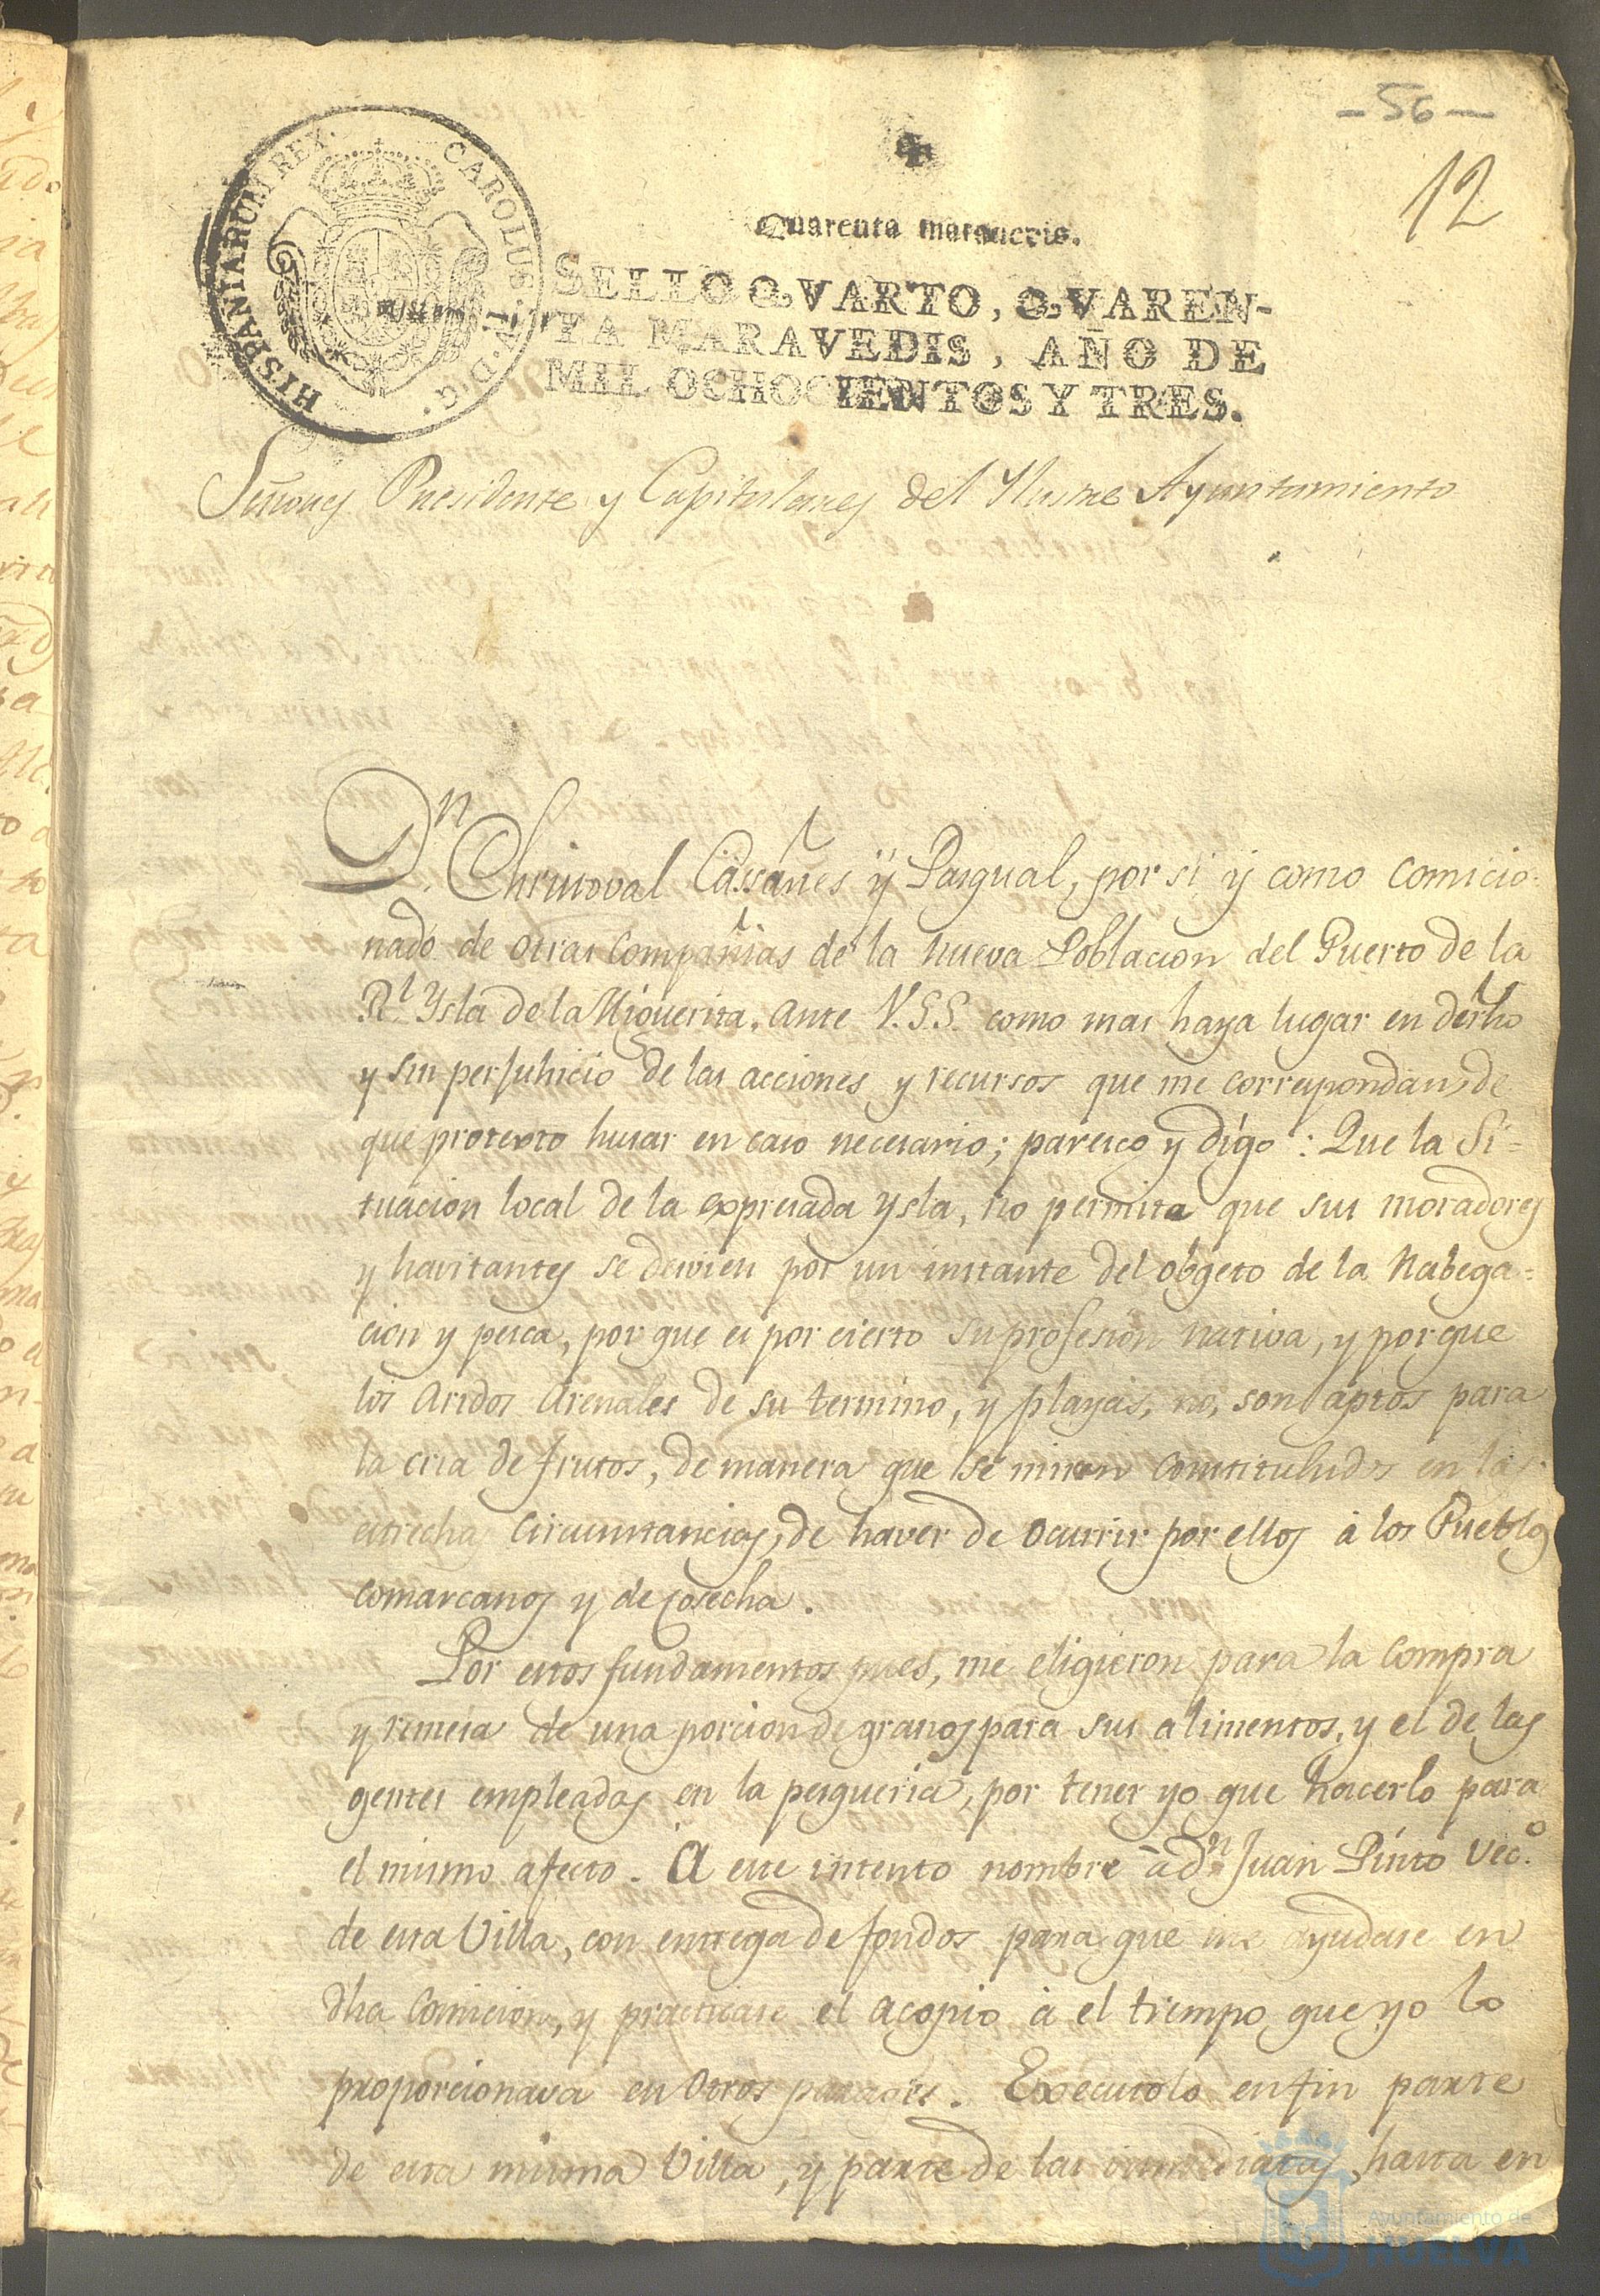 - 56 -
12
HISPANIARUM REX. CAROLUS. IV. D. G.
Quarenta marauedis.
SELLO QVARTO, QVAREN-
TA MARAVEDIS, AÑO DE
MIL OCHOCIENTOS Y TRES.
Señores Presidente y Capitulares del Ilustre Ayuntamiento
Dn. Christoval Cassañes y Pasqual, por si y como comicio-
nado de otras compañias de la nueva Poblacion del Puerto de la
Rl. Ysla de la Higuerita, ante V.S.S. como mas haya lugar en derho
y sin perjuhicio de las acciones y recursos que me correspondan, de
que protexto husar en caso necesario; paresco y digo: Que la Si-
tuacion local de la expresada Ysla, no permite que sus moradores
y havitantes se desvien por un instante del obgeto de la Nabega-
cion y pesca, porque es por cierto su profesion nativa, y porque
los aridos arenales de su termino, y playas, no, son aptos para
la cria de frutos, de manera que se miran constituhidos en las
estrechas circunstancias, de haver de ocurrir por ellos á los Pueblos
comarcanos y de cosecha.
Por estos fundamentos pues, me eligieron para la compra
y remesa de una porcion de granos para sus alimentos, y el de las
gentes empleadas en la pesqueria, por tener yo que hacerlo para
el mismo afecto. A este intento nombre à dn. Juan Pinto Veco.
de esta Villa, con entrega de fondos para que me ayudase en
dha Comicion, y practicase el acopio à el tiempo que yo lo
proporcionava en otros parages. Executolo en fin parte
de esta misma Villa, y parte de las inmediatas, hasta en
Ayuntamiento de
HUELVA